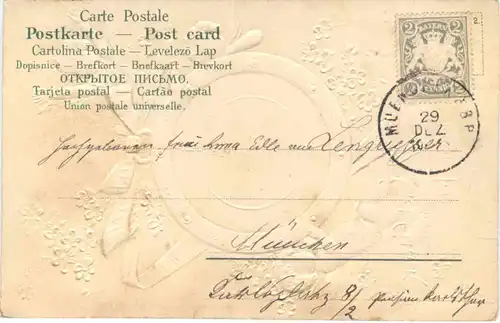 Carte Postale
Postkarte — Post card
Cartolina Postale — Levelező Lap
Dopisnice — Brefkort — Briefkaart — Brevkort
ОТКРЫТОЕ ПИСЬМО.
Tarjeta postal — Cartão postal
Union postale universelle.
2 2
2.
MUEN
29
DEZ
Hochwohlgeboren Frau Irma Edle von
München
8/2